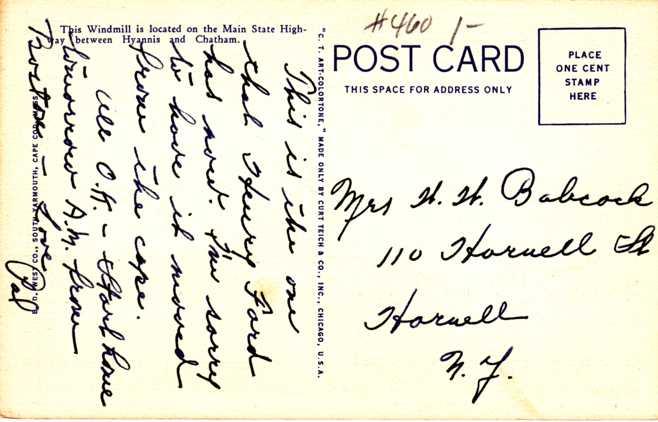 This Windmill is located on the Main State High-
way between Hyannis and Chatham.
This is the one
that Henry Ford
has now. I'm sorry
to have it moved
from the cape.
All O.K. - Start home
tomorrow A.M. from
Boston - Love
Pal
"C. T. ART-COLORTONE," MADE ONLY BY CURT TEICH & CO., INC., CHICAGO, U.S.A.
#460 1-
POST CARD
THIS SPACE FOR ADDRESS ONLY
PLACE
ONE CENT
STAMP
HERE
Mrs H. H. Babcock
110 Hornell St
Hornell
N. Y.
WEST CO., SOUTH YARMOUTH, CAPE COD, MASS.